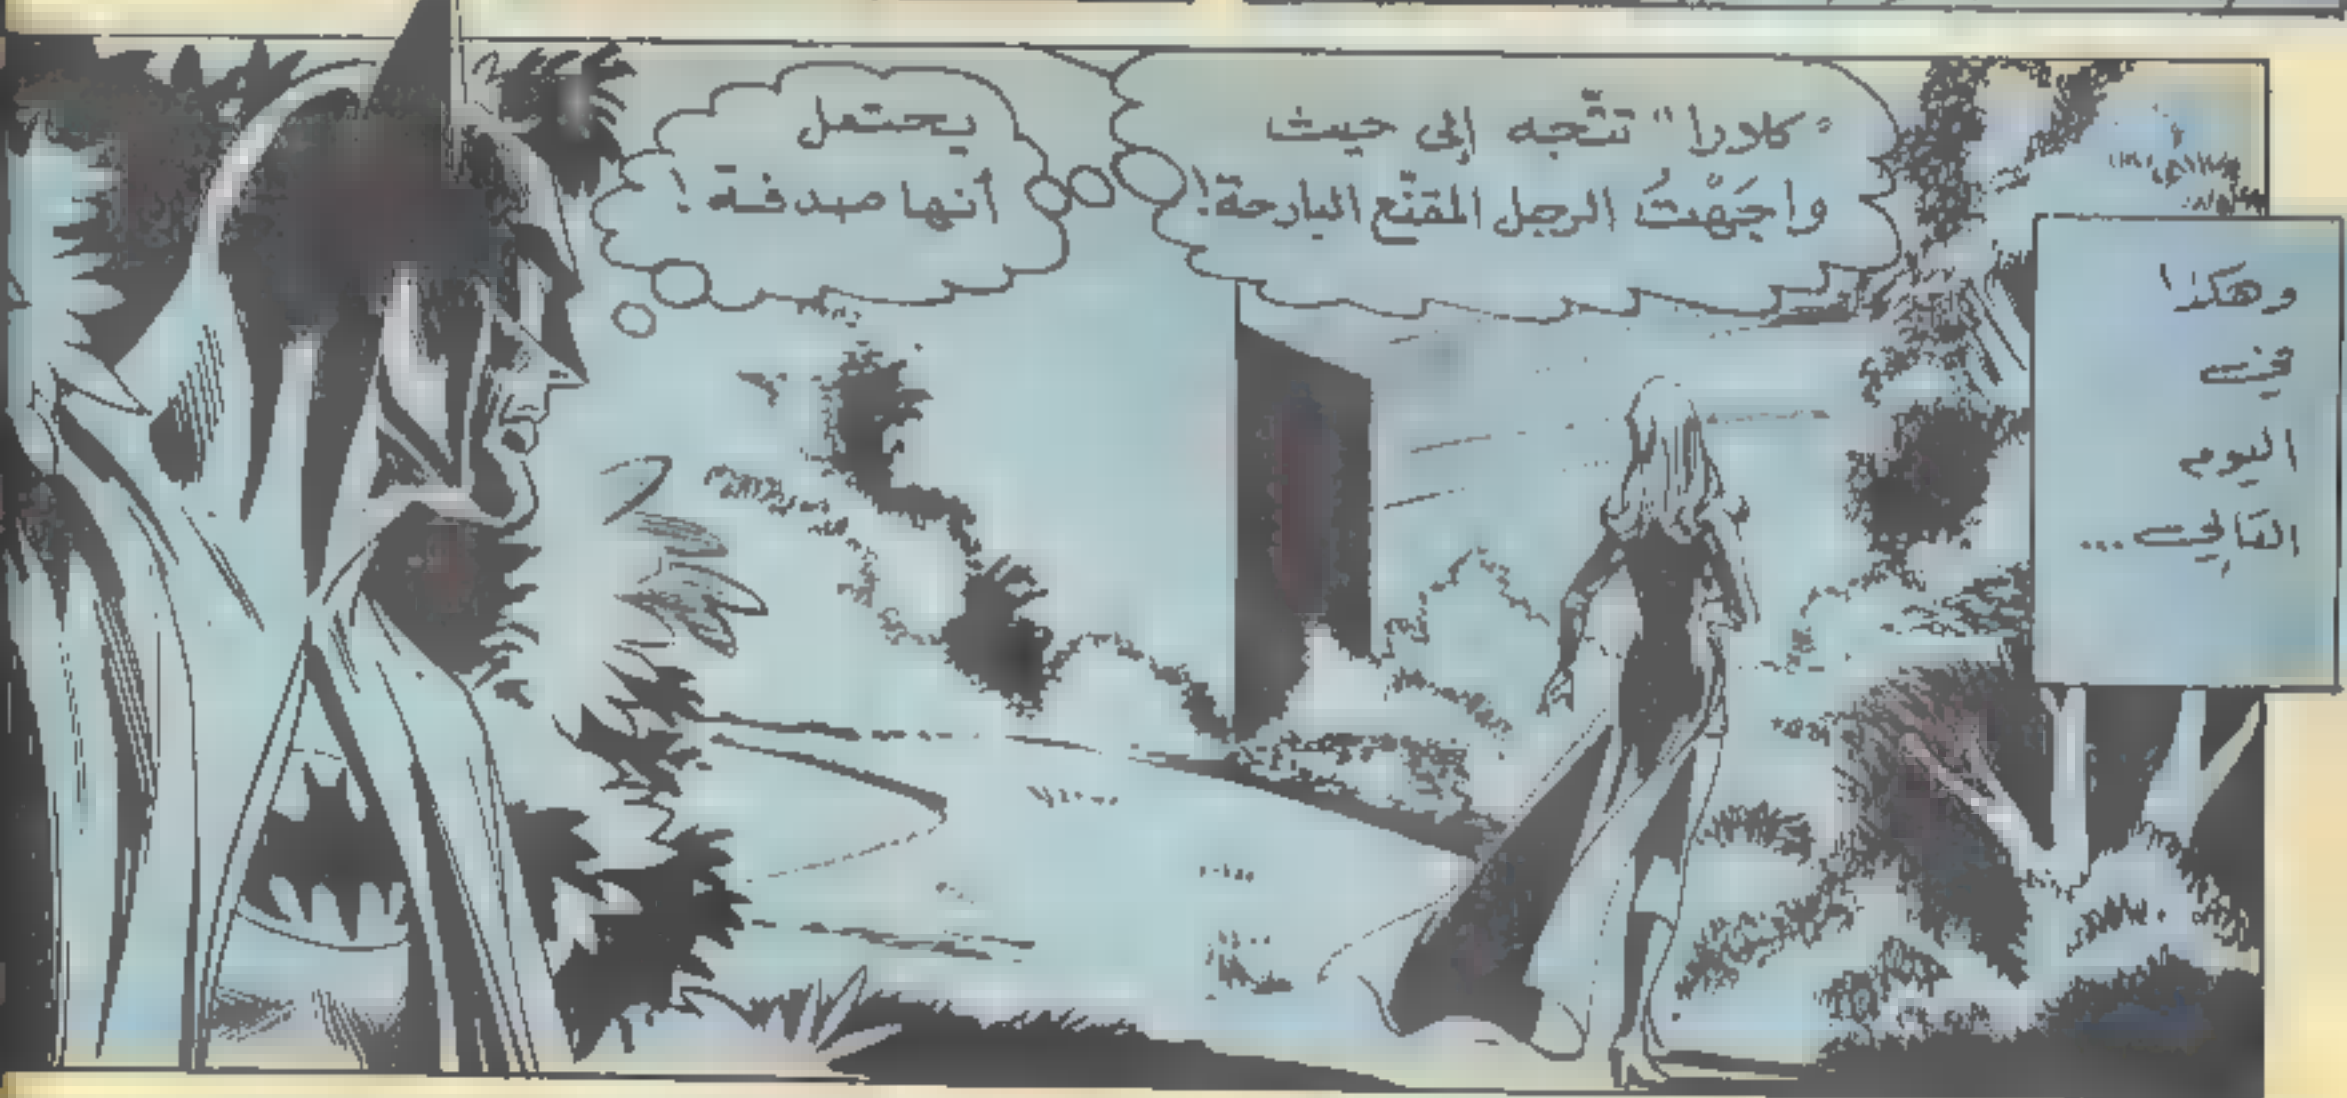 وهكذا
في
اليوم
التالي...
"كلورا" تتّجه إلى حيث
واجَهْتُ الرجل المقنّع البارحة!
يحتمل
أنها صدفة!